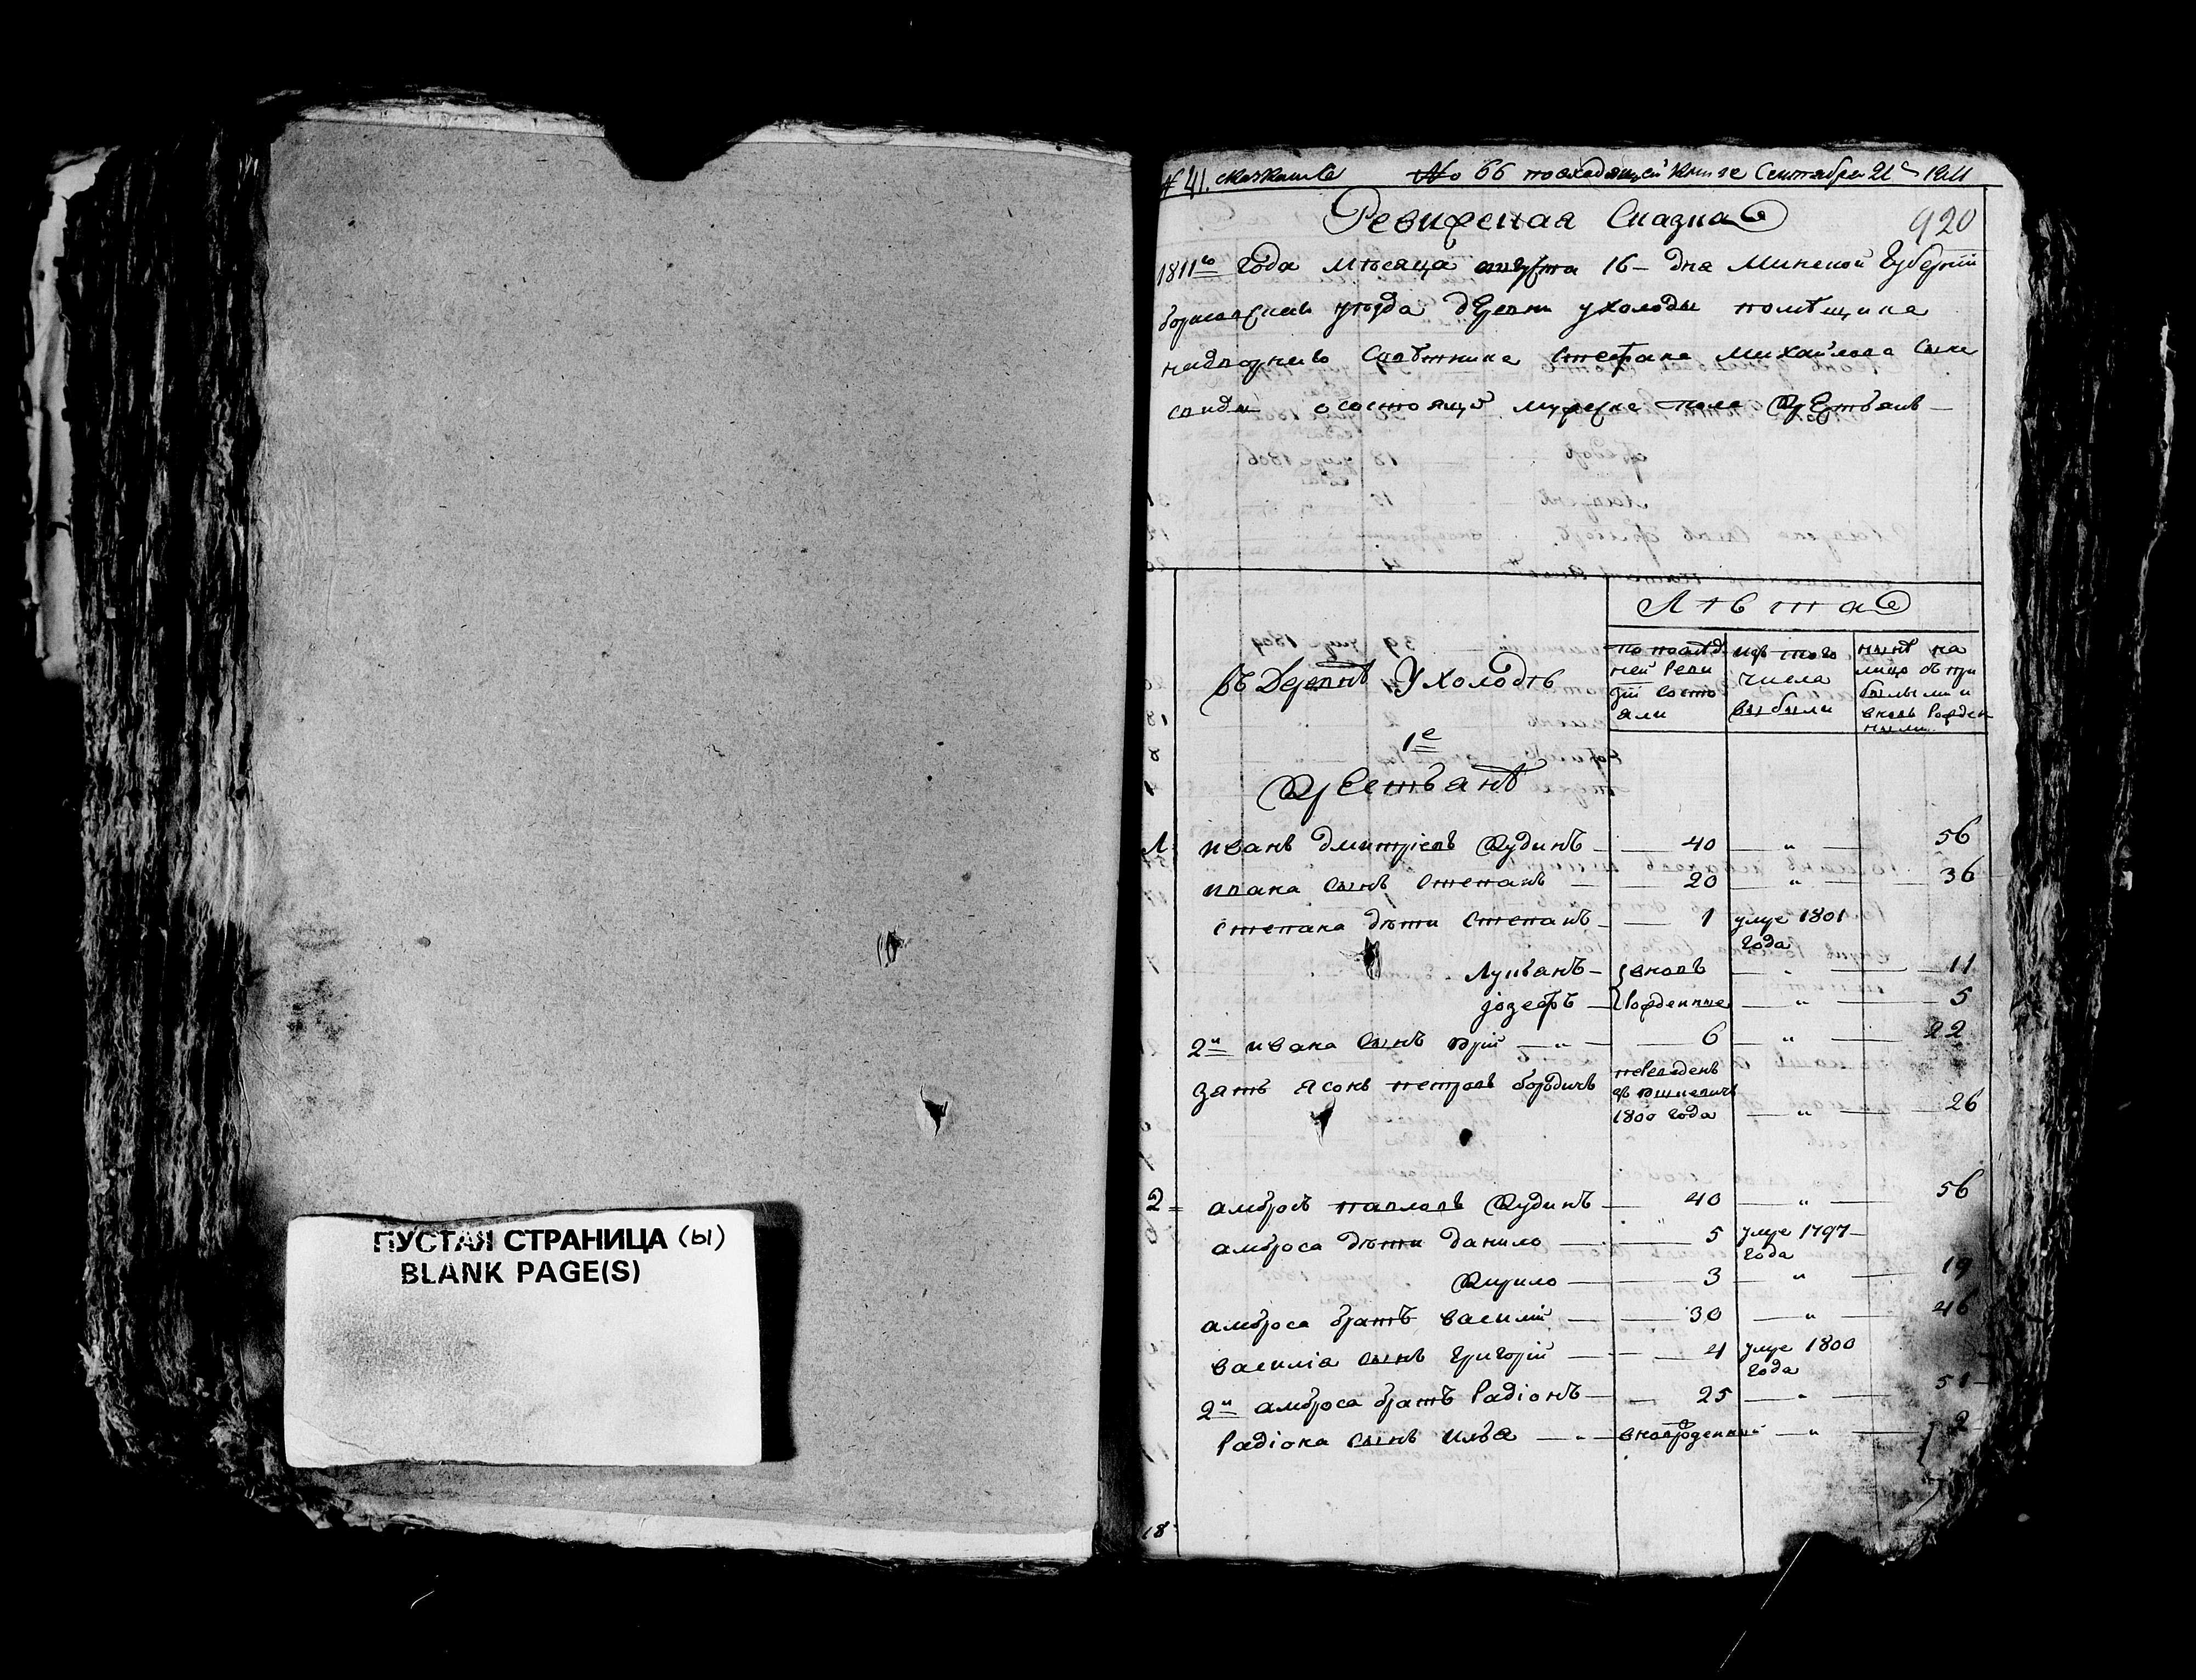 ПУСТАЯ СТРАНИЦА (ы)
BLANK PAGE(S)
№ 41. № 66 по входящей книге Сентября 21 1811
Ревизская Сказка
920
1811го года месяца августа 16 – дня Минской Губернiи
борисовскаго уѣзда деревни ухолоды помѣщика
надворнаго Совѣтника Стефана Михайлова сына
о состоящихъ мужеска пола крестьянъ –
Лѣта
Въ Деревнѣ Ухолодѣ
по послѣд
ней Реви
зiи состо
яли
изъ того
числа
выбыли
нынѣ на
лицо съ при
былыми и
вновь Рожден
ными
1е
Крестьянѣ
1 иванъ дмитрiевъ Кудинъ – 40 „ 56
ивана сынъ Степанъ – 20 „ 36
степана дѣти Степанъ – 1 умре 1801
года
Лукьянъ – вновь 11
jозефъ – Рожденные „ 5
2й ивана сынъ юрiй „ 6 „ 22
зять ясонъ петровъ переведенъ
1800 года „ 26
2 амбросъ павловъ Кудинъ – 40 „ 56
амброса дѣти данило – 5 умре 1797
года
Кирило – 3 „ 19
амброса братъ василiй – 30 „ 46
василiя сынъ григорiй – 4 умре 1800
года
2й амброса братъ Радiонъ – 25 „ 51
Радiона сынъ илья – „ вноврожденный „ 2
18